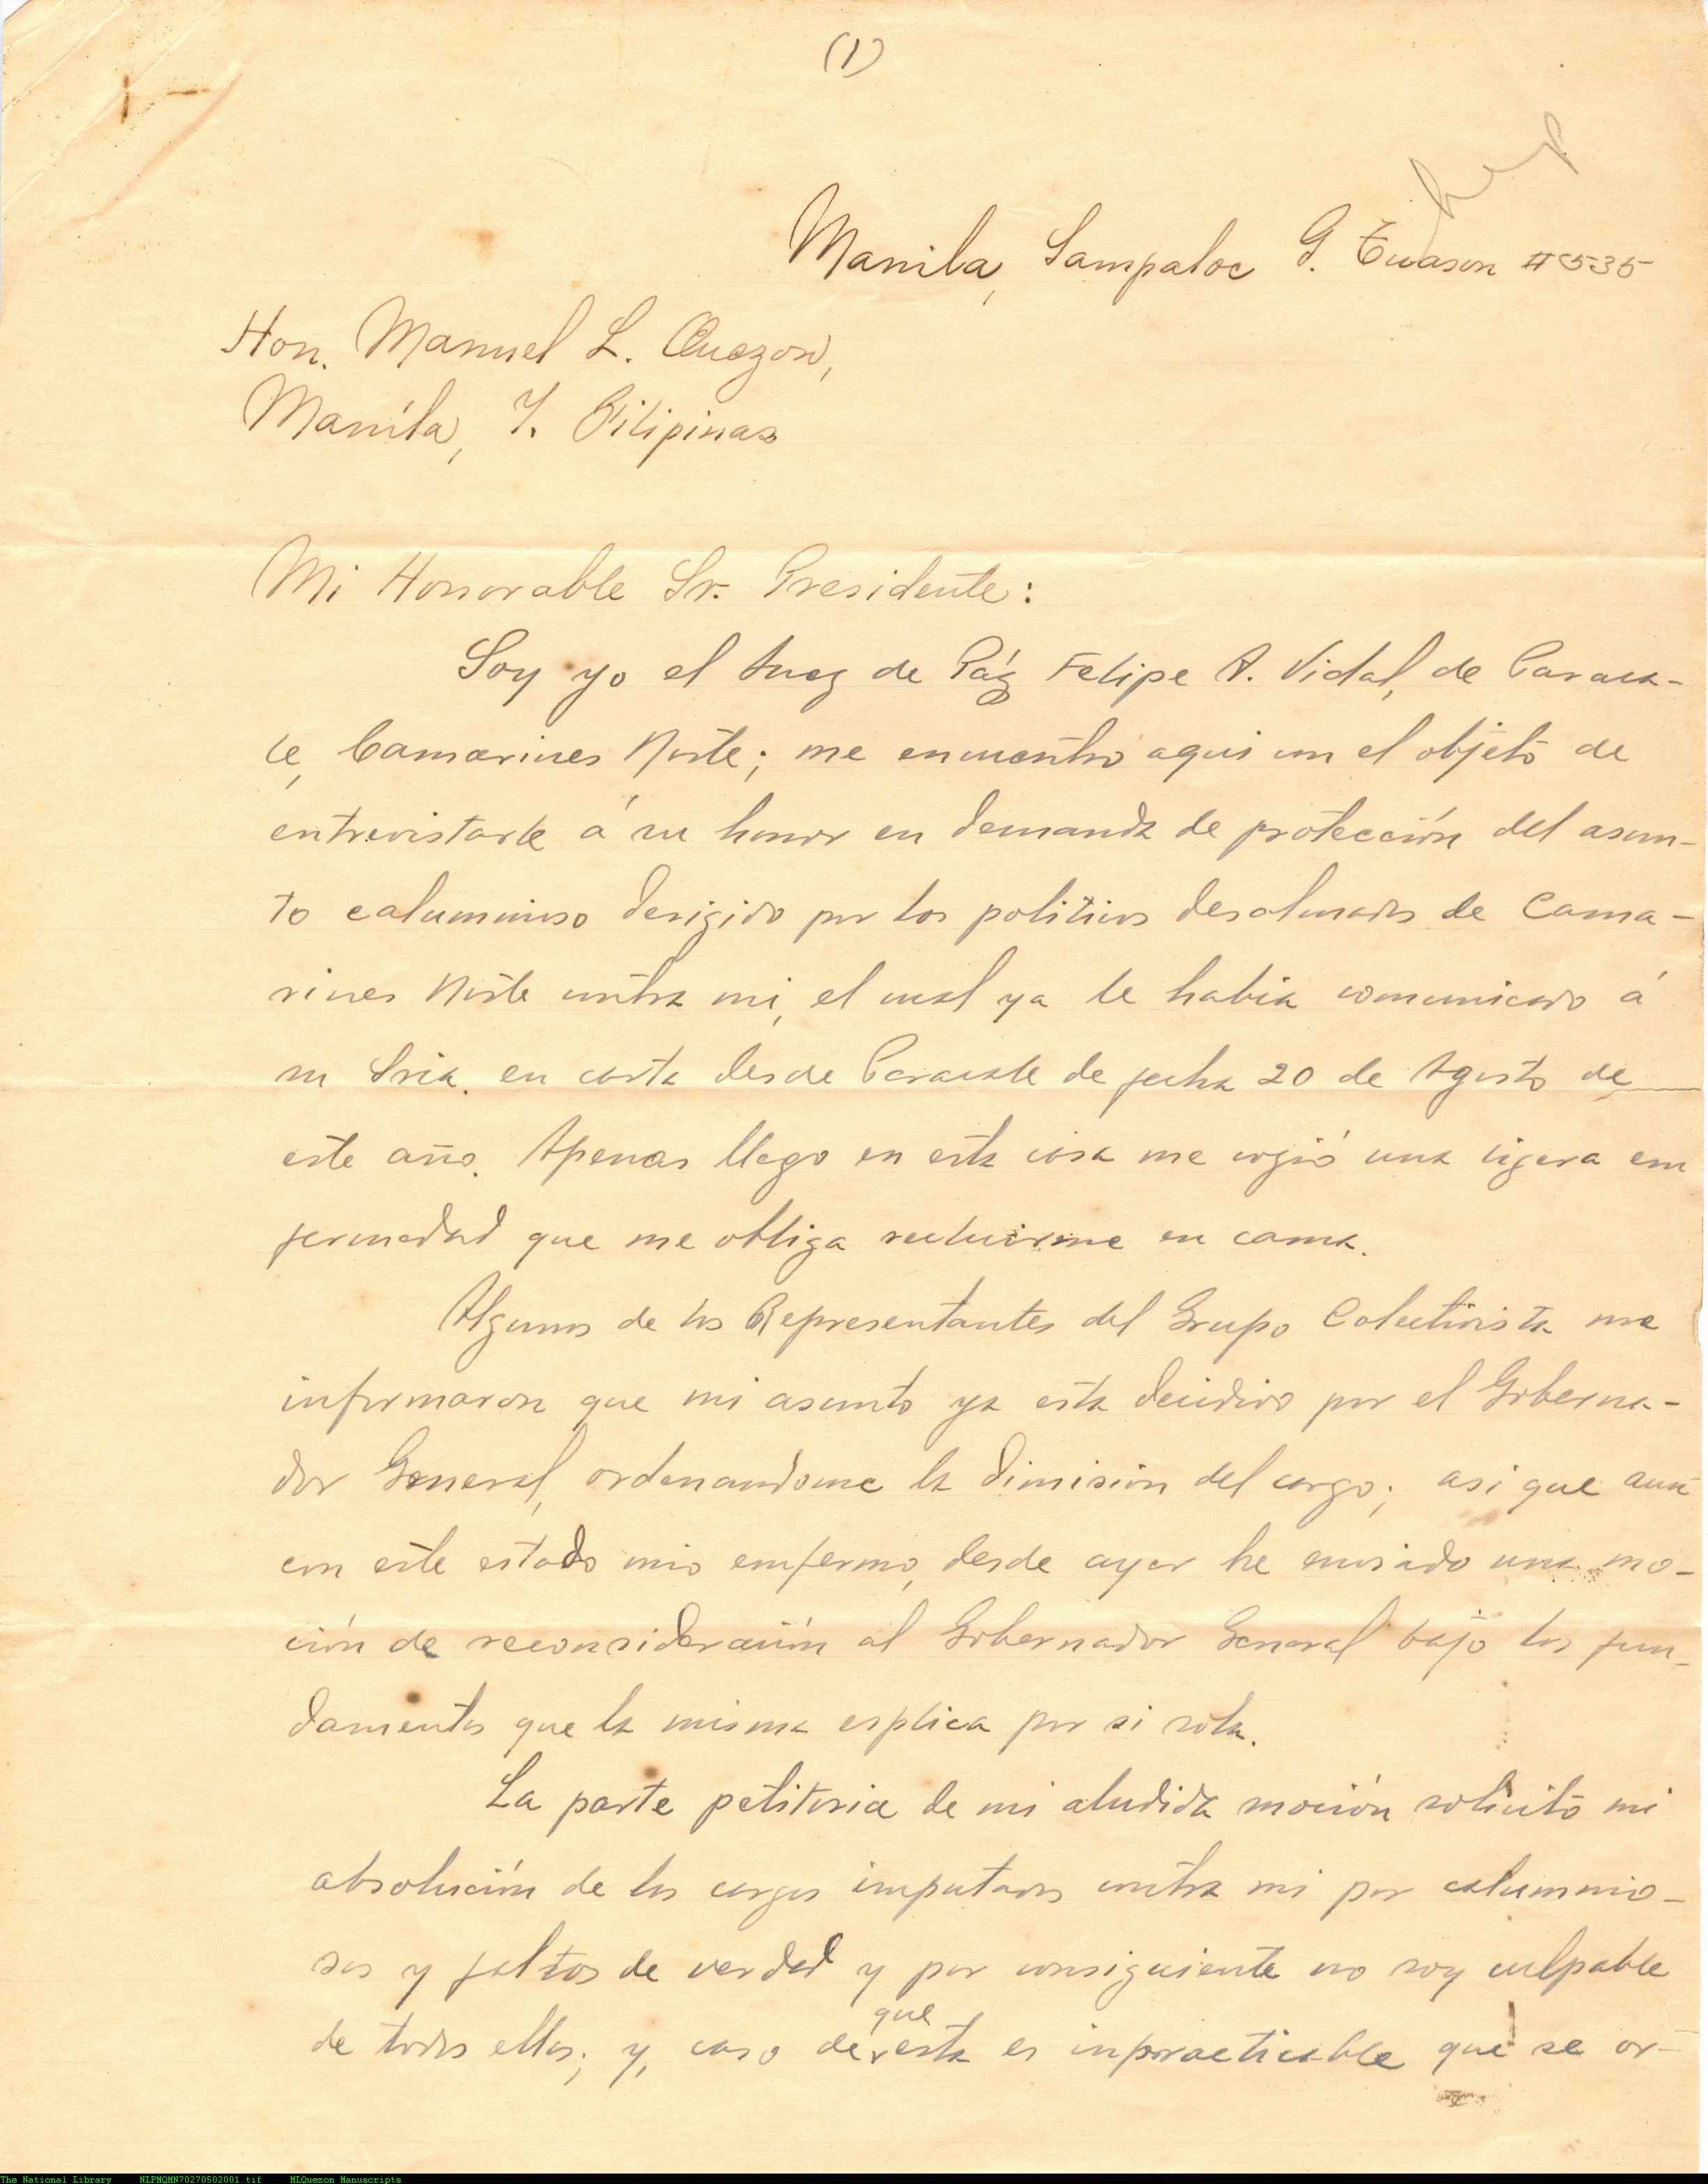 (1)
Manila, Sampaloc G. Tuason #535
Hon. Manuel L. Quezon,
Manila, I. Filipinas
Mi Honorable Sr. Presidente:
Soy yo el Juez de Páz Felipe A. Vidal, de Paraca-
le, Camarines Norte; me encuentro aqui con el objeto de
entrevistarle á su honor en demanda de protección del asun-
to calumnioso derigido por los politicos desalmados de Cama-
rines Norte contra mi, el cual ya le habia comunicado á
su Sria. en carta desde Paracale de fecha 20 de Agosto de
este año. Apenas llego en esta casa me cogió una ligera em
fermedad que me obliga recluirme en cama.
Algunos de los Representantes del Grupo Colectivista me
informaron que mi asunto ya esta decidido por el Goberna-
dor General, ordenandome la dimisión del cargo; asi que aun
con este estado mio emfermo, desde ayer he enviado una mo-
ción de reconsideración al Gobernador General bajo los fun-
damentos que la misma esplica por si sola.
La parte petitoria de mi aludida moción solicito mi
absolución de los cargos imputados contra mi por calumnio-
sos y faltos de verdad y por consiguiente no soy culpable
de todos ellos; y, caso de que esta es inpracticable que se or-
The National Library NLPMQMN70270502001.tif MLQuezon Manuscripts